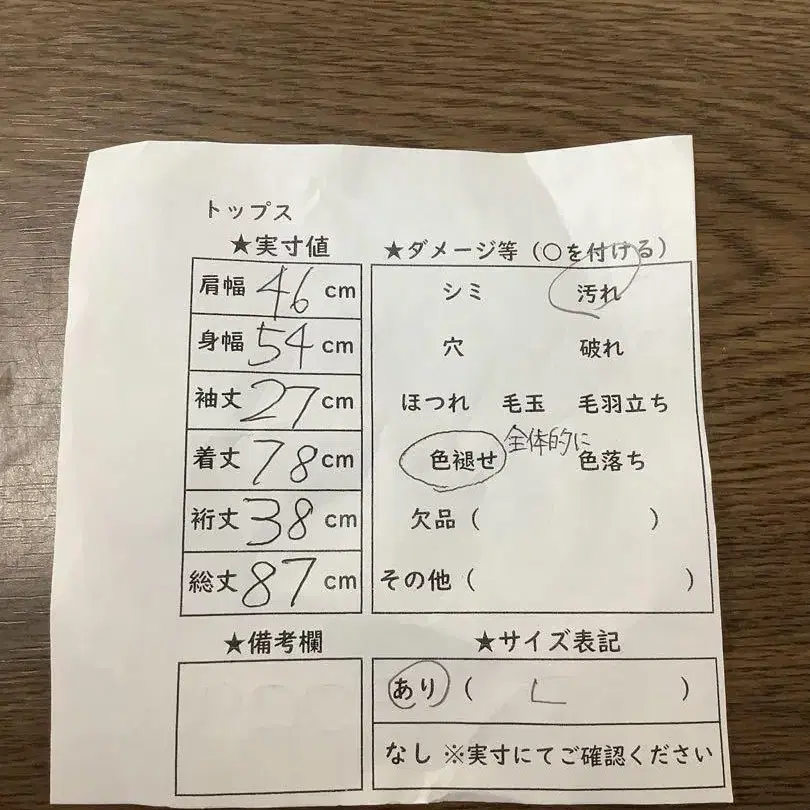 トップス
★実寸値
肩幅 46 cm
身幅 54 cm
袖丈 27 cm
着丈 78 cm
裄丈 38 cm
総丈 87 cm
★ダメージ等(○を付ける)
シミ 汚れ
穴 破れ
ほつれ 毛玉 毛羽立ち
色褪せ 全体的に 色落ち
欠品( )
その他( )
★備考欄
★サイズ表記
あり( L )
なし ※実寸にてご確認ください